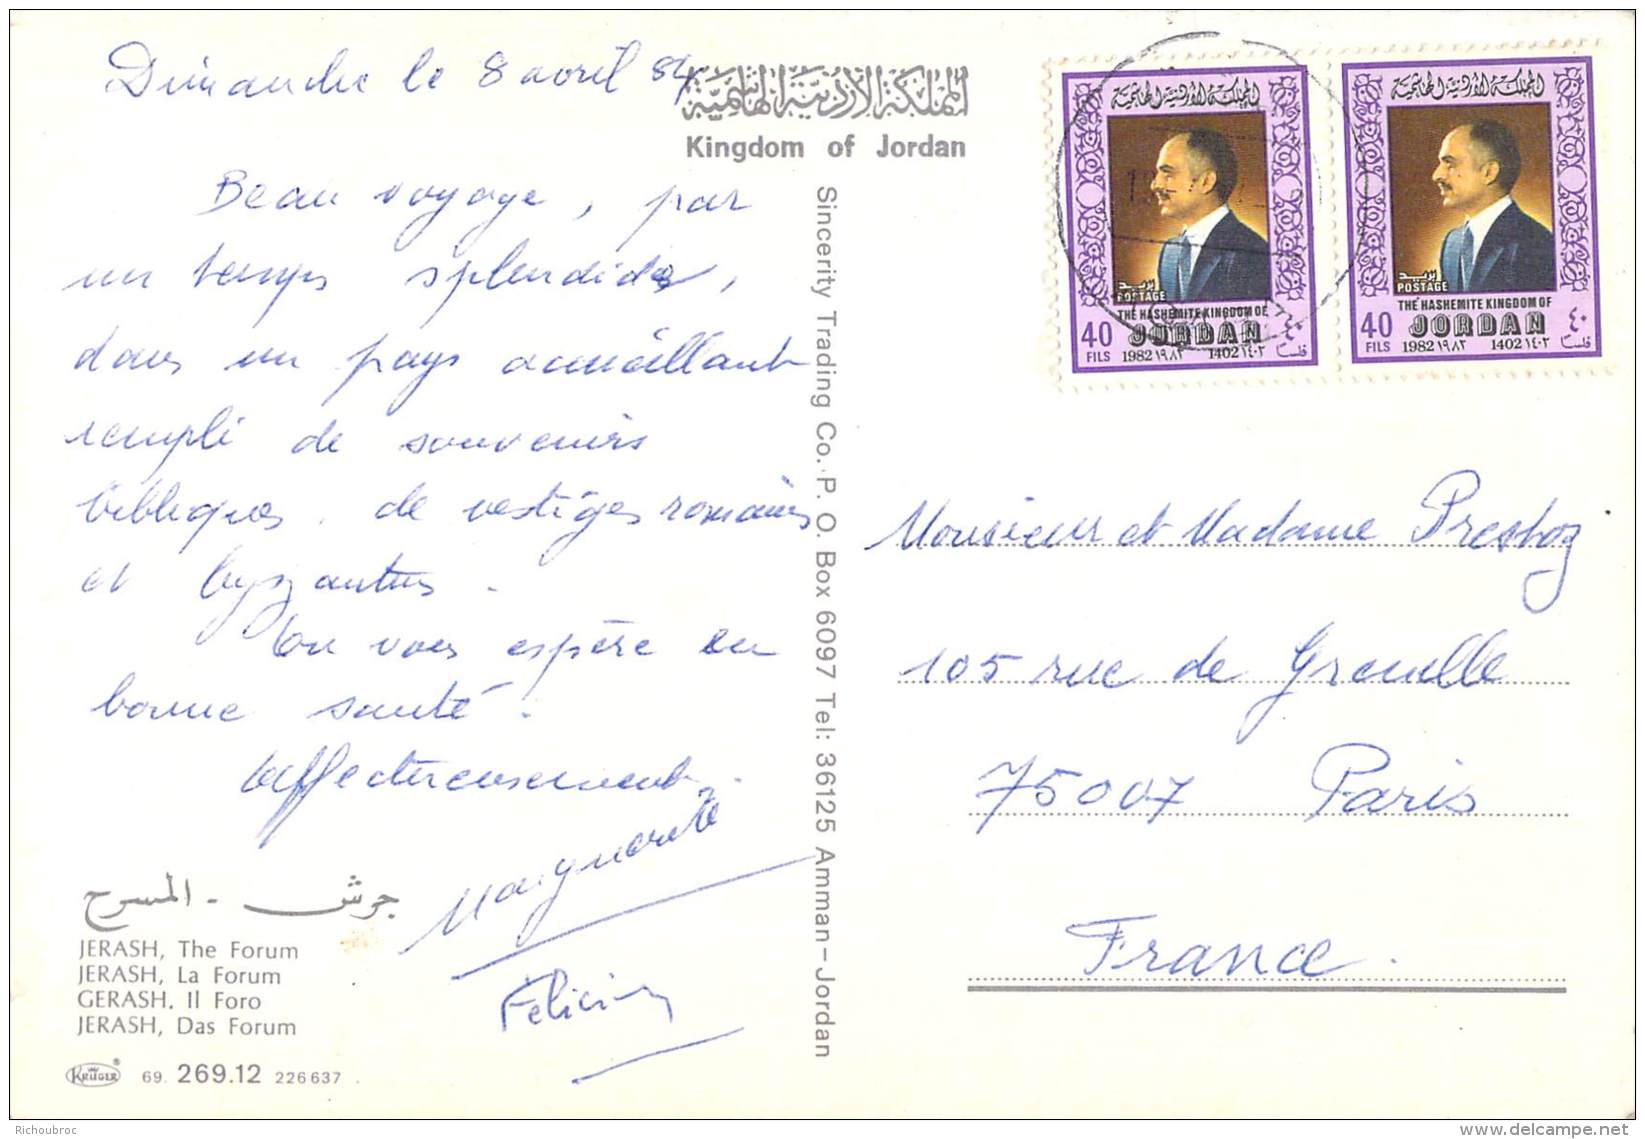 Dimanche le 8 avril 84
المملكة الأردنية الهاشمية
Kingdom of Jordan
Beau voyage, par
un temps splendide,
dans un pays accueillant
rempli de souvenirs
bibliques, de vestiges romains
et byzantins.
On vous espère en
bonne santé.
Affectueusement.
Marguerite
Félicien
جرش - المسرح
JERASH, The Forum
JERASH, La Forum
GERASH. Il Foro
JERASH, Das Forum
KRÜGER ® 69. 269.12 226637
Sincerity Trading Co. P. O. Box 6097 Tel: 36125 Amman-Jordan
المملكة الأردنية الهاشمية
بريد
POSTAGE
THE HASHEMITE KINGDOM OF
40 JORDAN ٤٠
FILS 1982 ١٩٨٢ 1402 ١٤٠٢ فلسا
المملكة الأردنية الهاشمية
بريد
POSTAGE
THE HASHEMITE KINGDOM OF
40 JORDAN ٤٠
FILS 1982 ١٩٨٢ 1402 ١٤٠٢ فلسا
Monsieur et Madame
105 rue de Grenelle
75007 Paris
France.
Richoubroc
www.delcampe.net